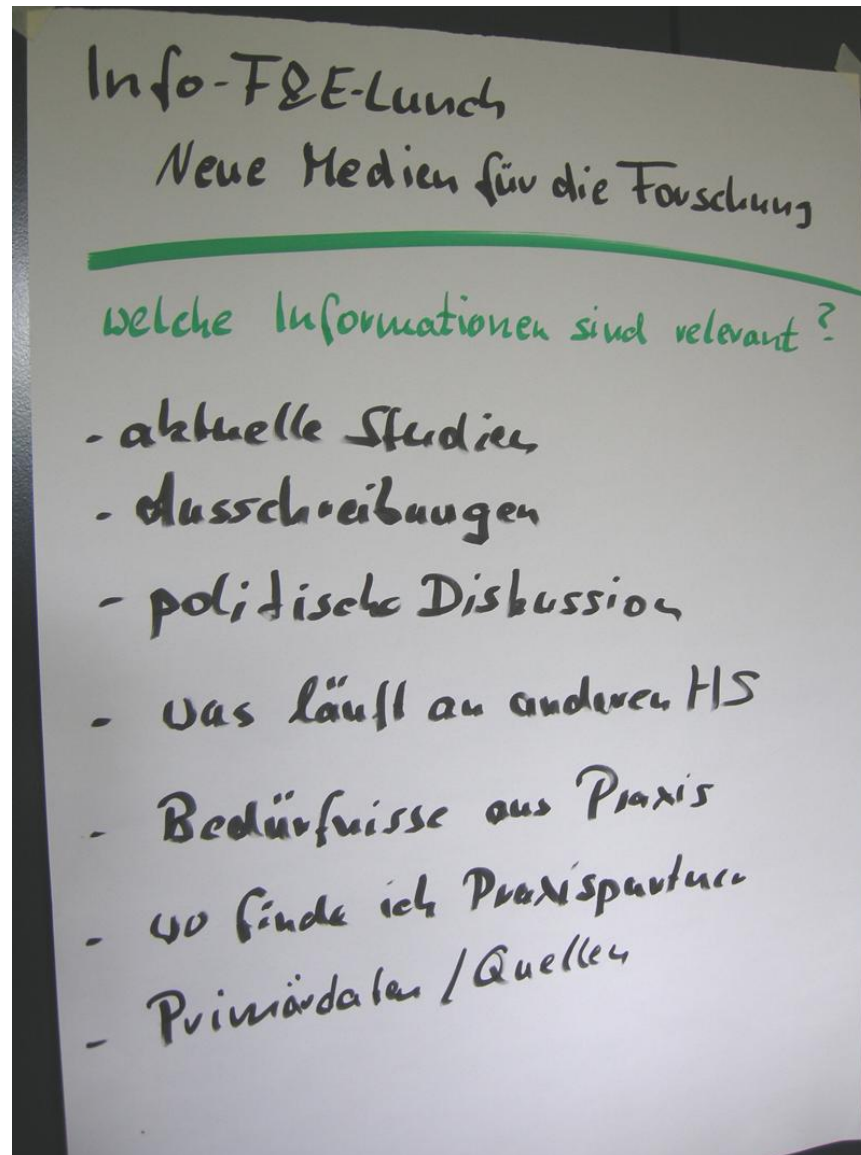 Info-F&E-Lunch
Neue Medien für die Forschung
welche Informationen sind relevant?
- aktuelle Studien
- Ausschreibungen
- politische Diskussion
- was läuft an anderen HS
- Bedürfnisse aus Praxis
- wo finde ich Praxispartner
- Primärdaten / Quellen